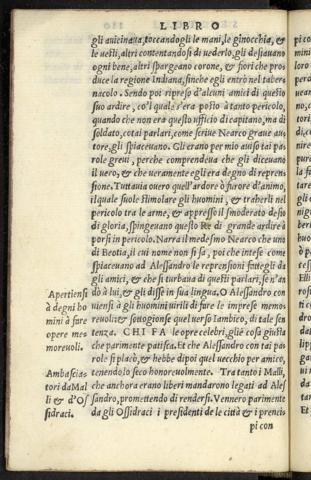 LIBRO
gli auicinaua, toccandogli le mani, le ginocchia, &
le uesti, altri contentandosi di uederlo, gli desiauano
ogni bene, altri spargeano corone, & fiori che pro
duce la regione Indiana, sinche egli entrò nel taber-
nacolo. Sendo poi ripreso d'alcuni amici di questo
suo ardire, co'l quale s'era posto à tanto pericolo,
quando che non era questo ufficio di capitano, ma di
soldato, cotai parlari, come scriue Nearco graue au-
tore, gli spiaceuano. Gli erano per mio auiso tai pa
role greui, perche comprendeua che gli diceuano
il uero, & che ueramente egli era degno di repren-
sione. Tuttauia ouero quell'ardore ò furore d'animo,
il quale suole stimolare gli huomini, & traherli nel
pericolo tra le arme, & appresso il smoderato desio
di gloria, spingeuano questo Re di grande ardire à
porsi in pericolo. Narra il medesmo Nearco che uno
di Beotia, il cui nome non si sa, poi che intese come
spiaceuano ad Alessandro le reprensioni fattegli da
gli amici, & che si turbaua di questi parlari, se n'an
dò à lui, & gli disse in sua lingua. O Alessandro co
uiensi à gli huomini uirili di fare le imprese memo-
reuoli: & sottogionse quel uerso Iambico, di tale sen
tenza. CHI FA le opre celebri, gliè cosa giusta
che parimente patisca. Et che Alessandro con tai pa
role si placò, & hebbe dipoi quel uecchio per amico,
tenendolo seco honoreuolmente. Tra tanto i Malli,
che anchora erano liberi mandarono legati ad Ales
sandro, promettendo di rendersi. Vennero parimente
da gli Ossidraci i presidenti de le città & i prencis
pi con
Apertiensi
à degni ho
mini à fare
opere me
moreuoli.
Ambascia
tori da Mal
li & d'Os
sidraci.